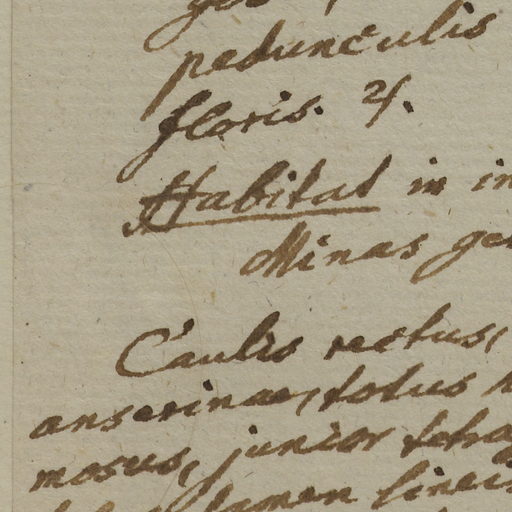 pedunculis
floris. ♃.
Habitat in in
Minas ge
Caulis rectus,
anserinae, totus
mosus, junior tetra
tamen lineis